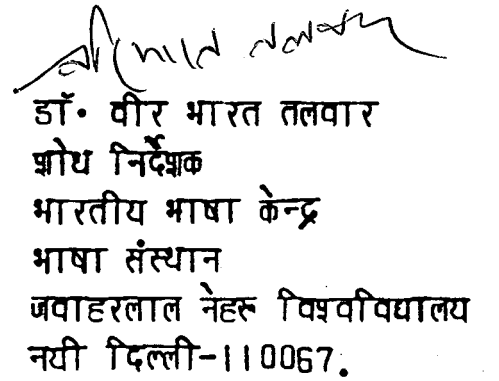 वीर भारत तलवार
डॉ. वीर भारत तलवार
शोध निर्देशक
भारतीय भाषा केन्द्र
भाषा संस्थान
जवाहरलाल नेहरू विश्वविद्यालय
नयी दिल्ली-110067.